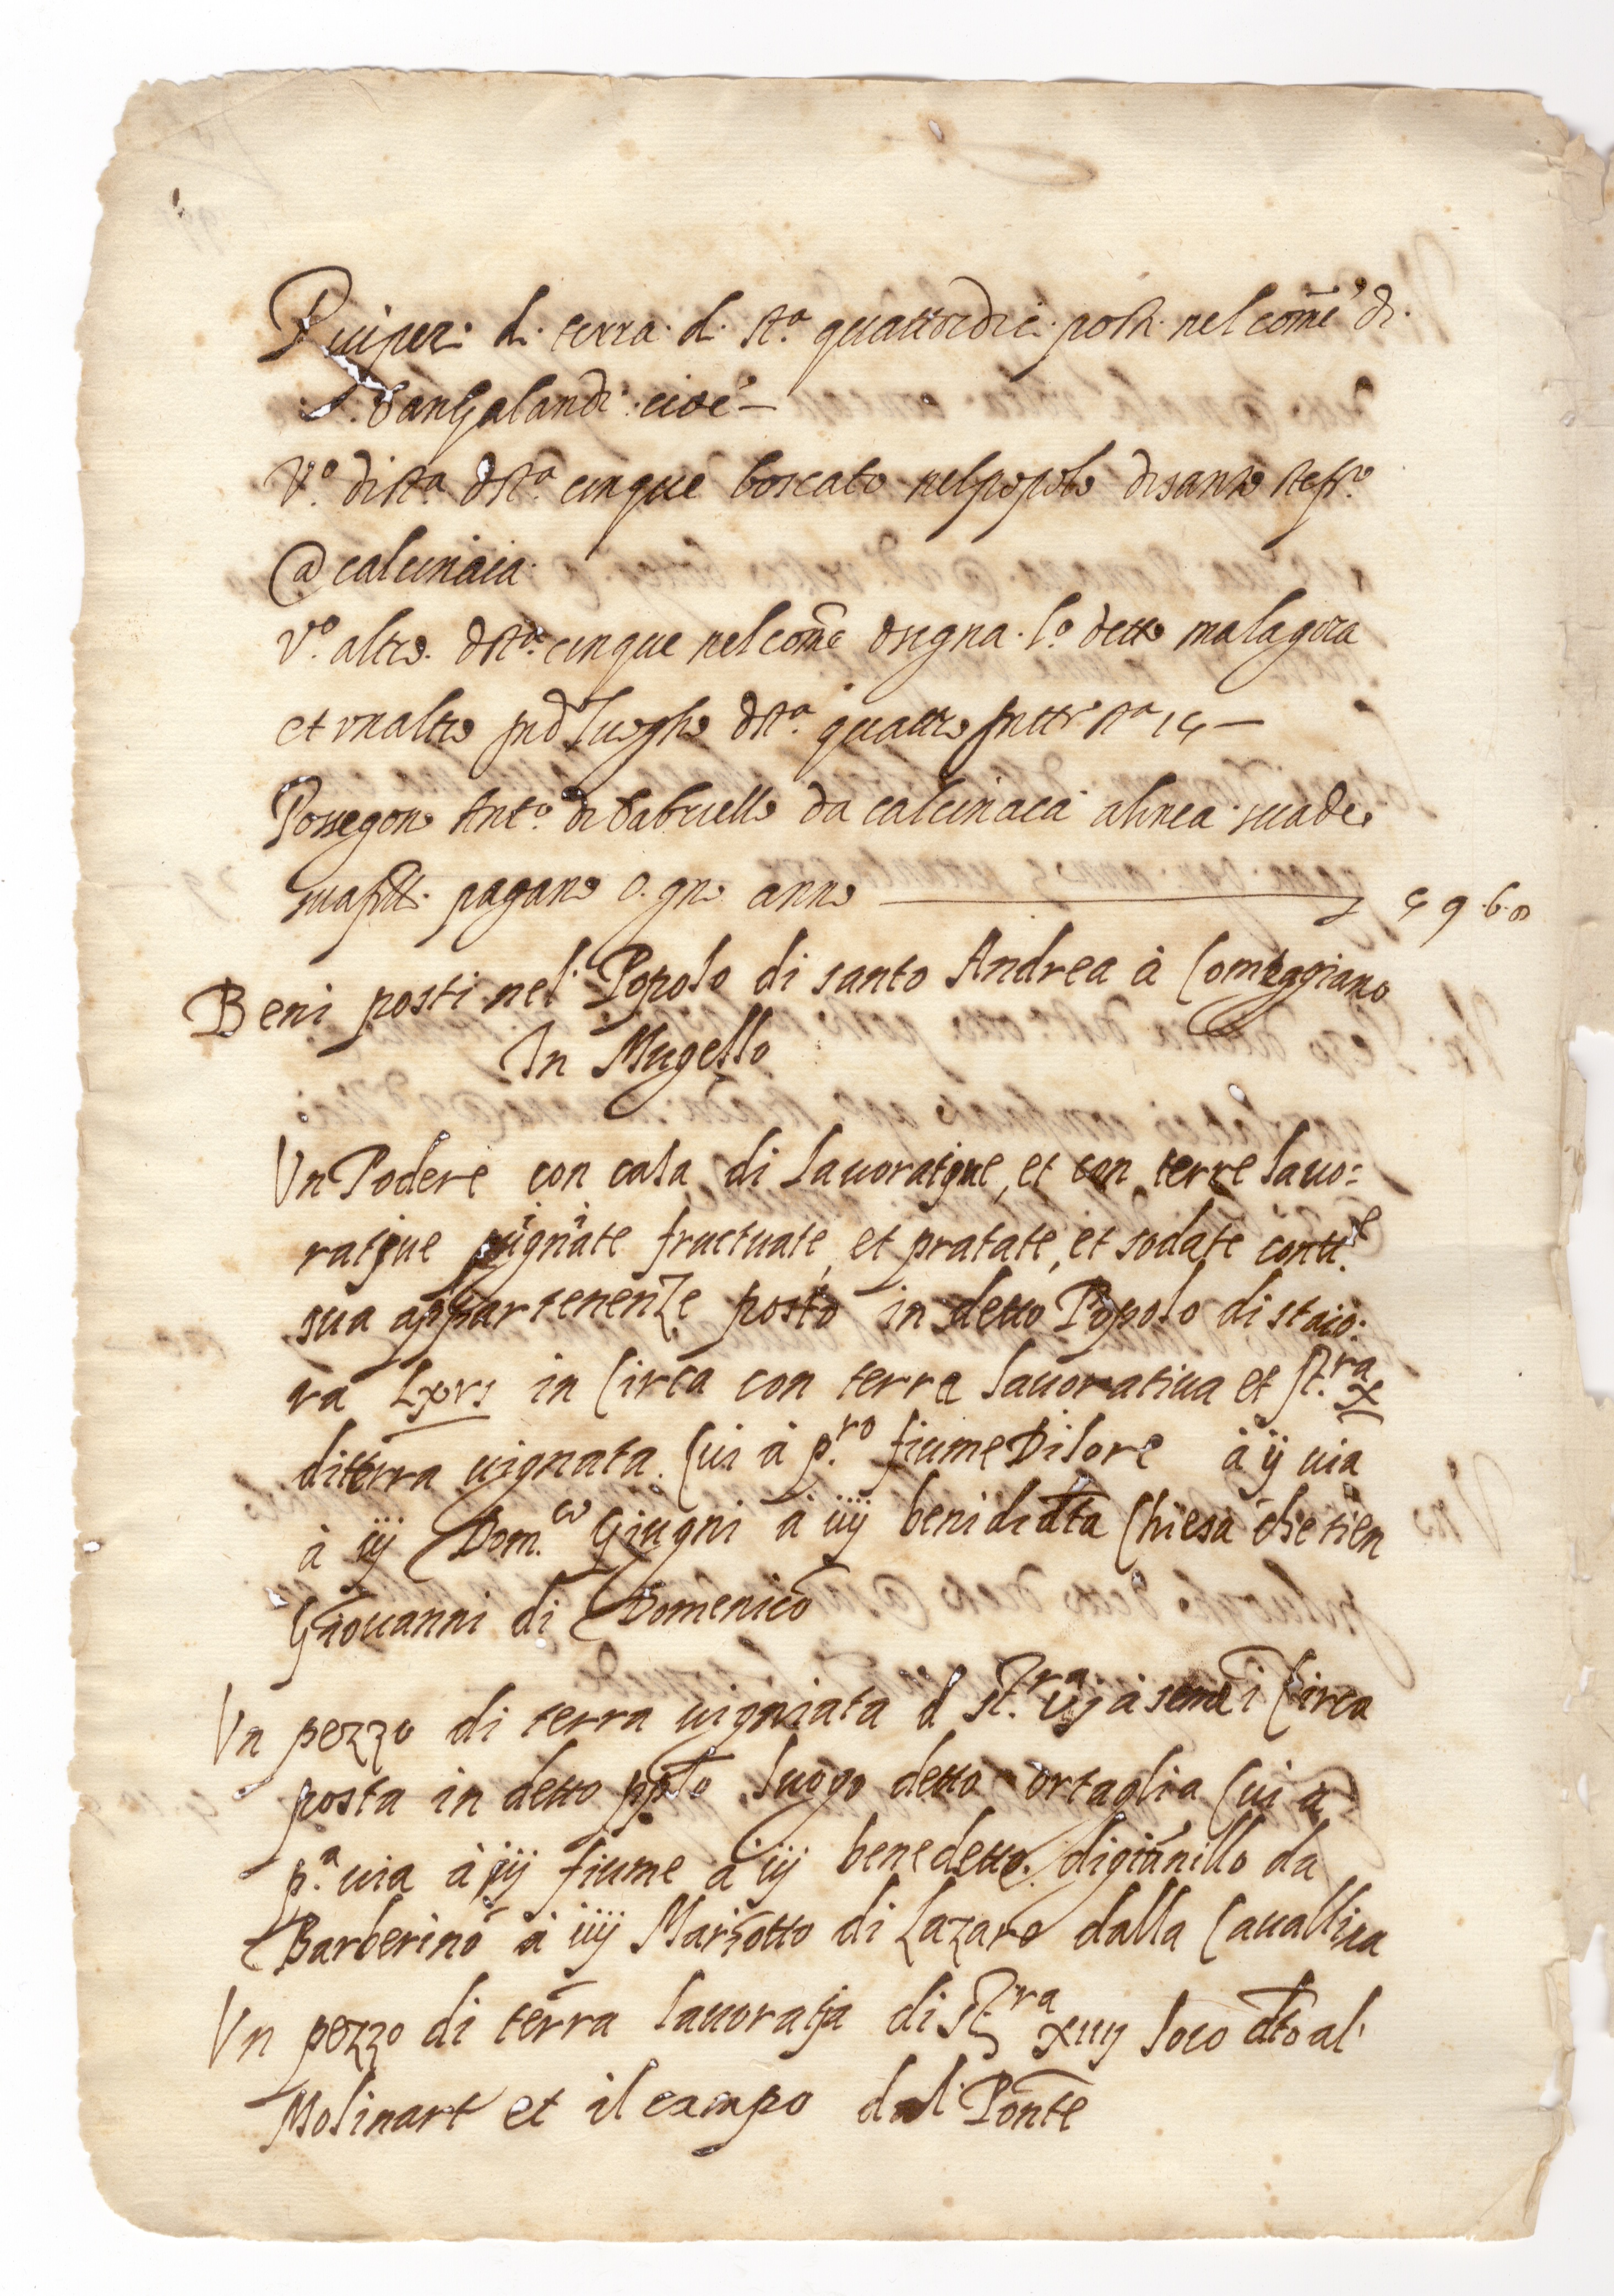 di terra di st.a quattordici posti nel come di
Gangalandi cioè
V.o di st.a cinque boscato nel popolo di santo stef.o
@ calcinaia
V.o altro d st.a cinque nel come d signa l.o detto malagora
et vnaltro luogho d st.a quattro st.a 14
Possegono Ant.o di Gabriello da calcinaia a linea
pagano ogno anno 9.6.8
Beni posti nel Popolo di santo Andrea à Comeggiano
In Mugello
Vn Podere con casa di lauoratore, et con terre lauo:
ratiue uigniate fructuate, et pratate, et sodate
sua appartenenze posto in detto Popolo di staio:
ra Lxvj in Circa con terre lauoratiua et st.ra x
di terra uignata Cui à p.ro fiume à ij uia
à iij Dom.co Giugni à iiij beni di dta Chiesa che tien
Giouanni di Domenico
Vn pezzo di terra uigniata d st.ra vj à seme i Circa
posta in detto pplo luogo detto ortaglia Cui a
p.a uia à ij fiume à iij benedetto di da
Barberino à iiij Mariotto di Lazaro dalla Cauallina
Vn pezzo di terra lauoratia di st.ra xiiij loco dto al
Molinart et il campo dal Ponte